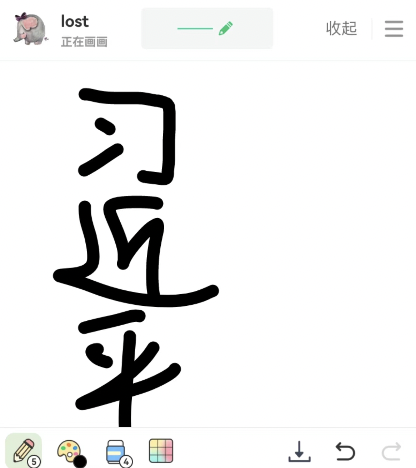 lost
正在画画
收起
习
近
平
5
4